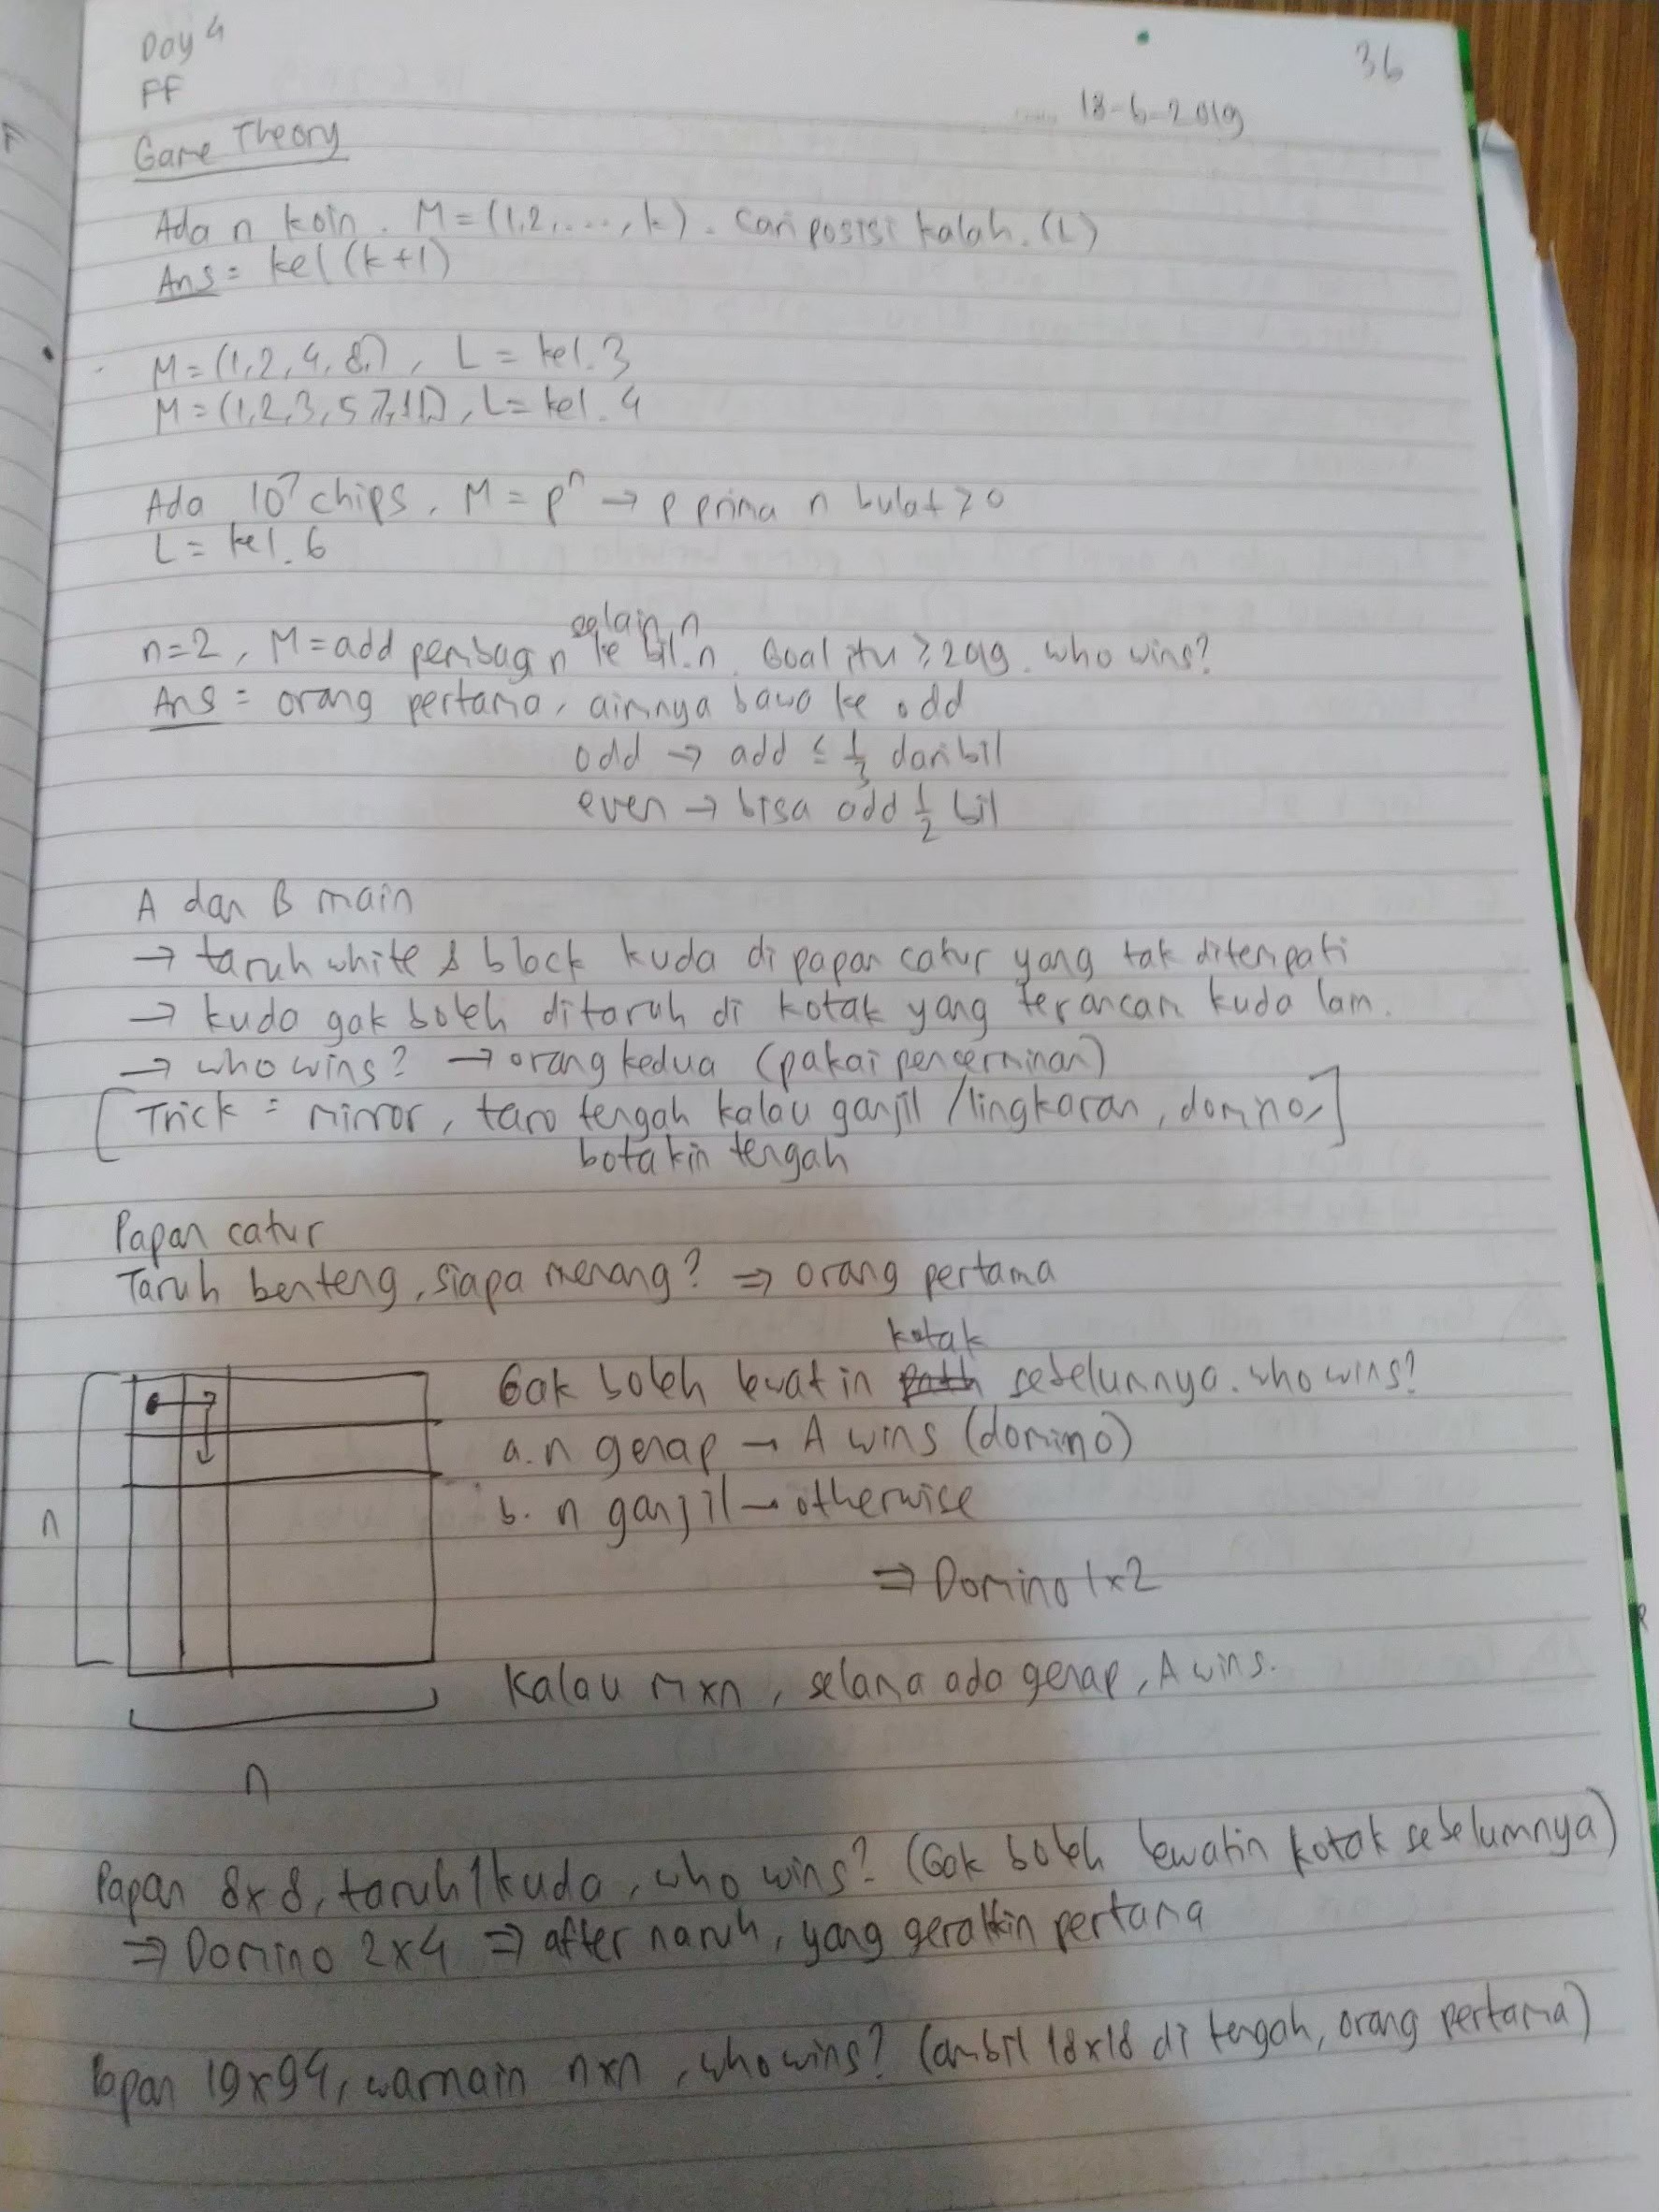 Day 4
FF
36
18-6-2019
Game Theory
Ada n koin. M = (1,2,...,k). Cari posisi kalah. (L)
Ans = kel (k+1)
M = (1,2,4,8,), L = kel. 3
M = (1,2,3,5,7,11,), L = kel. 4
Ada 10⁷ chips. M = pⁿ → p prima n bulat ≥ 0
L = kel. 6
selain n
n=2, M = add pembagi n ke bil. n. Goal itu ≥ 2019. who wins?
Ans = orang pertama, aimnya bawa ke odd
odd → add ≤ 1/3 dari bil
even → bisa add 1/2 bil
A dan B main
→ taruh white & black kuda di papan catur yang tak ditempati
→ kuda gak boleh ditaruh di kotak yang terancam kuda lain.
→ who wins? → orang kedua (pakai pencerminan)
[Trick = mirror, taro tengah kalau ganjil / lingkaran, domino,]
botakin tengah
Papan catur
Taruh benteng, siapa menang? ⇒ orang pertama
kotak
Gak boleh lewatin path sebelumnya. who wins?
a. n genap → A wins (domino)
b. n ganjil → otherwise
n
⇒ Domino 1x2
Kalau mxn, selama ada genap, A wins.
n
Papan 8x8, taruh 1 kuda, who wins? (Gak boleh lewatin kotak sebelumnya)
⇒ Domino 2x4 ⇒ after naruh, yang gerakkin pertama
Papan 19x94, warnain nxn, who wins? (ambil 18x18 di tengah, orang pertama)